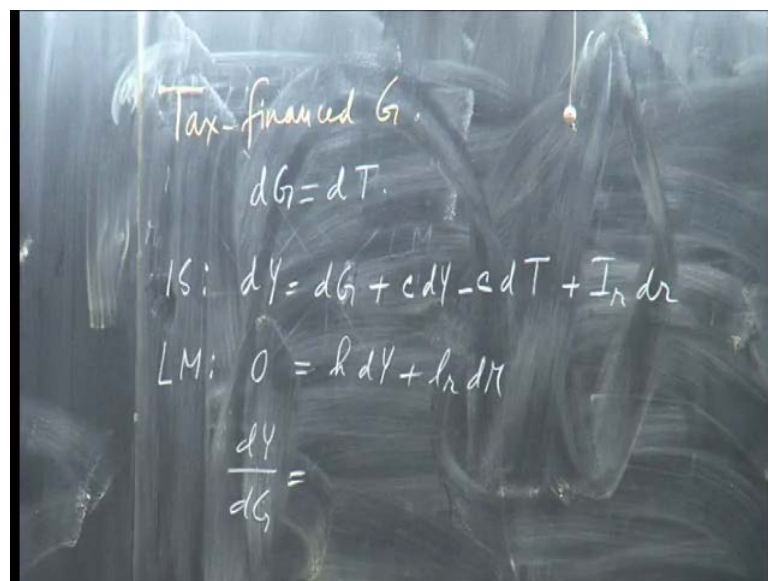 Tax-financed G.
dG = dT.
IS: dY = dG + cdY - cdT + I_r dr
LM: 0 = k dY + l_r dr
dY/dG =